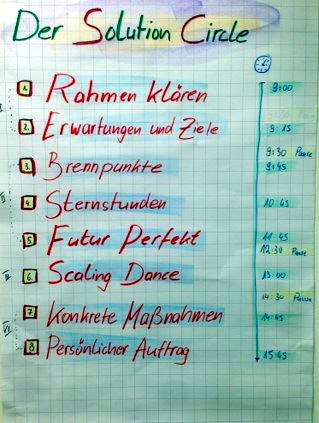 Der Solution Circle
1. Rahmen klären 9:00
2. Erwartungen und Ziele 9:15
9:30 Pause
3. Brennpunkte 9:45
4. Sternstunden 10:45
5. Futur Perfekt 11:45
12:30 Pause
6. Scaling Dance 13:00
14:30 Pause
7. Konkrete Maßnahmen 14:45
8. Persönlicher Auftrag 15:45